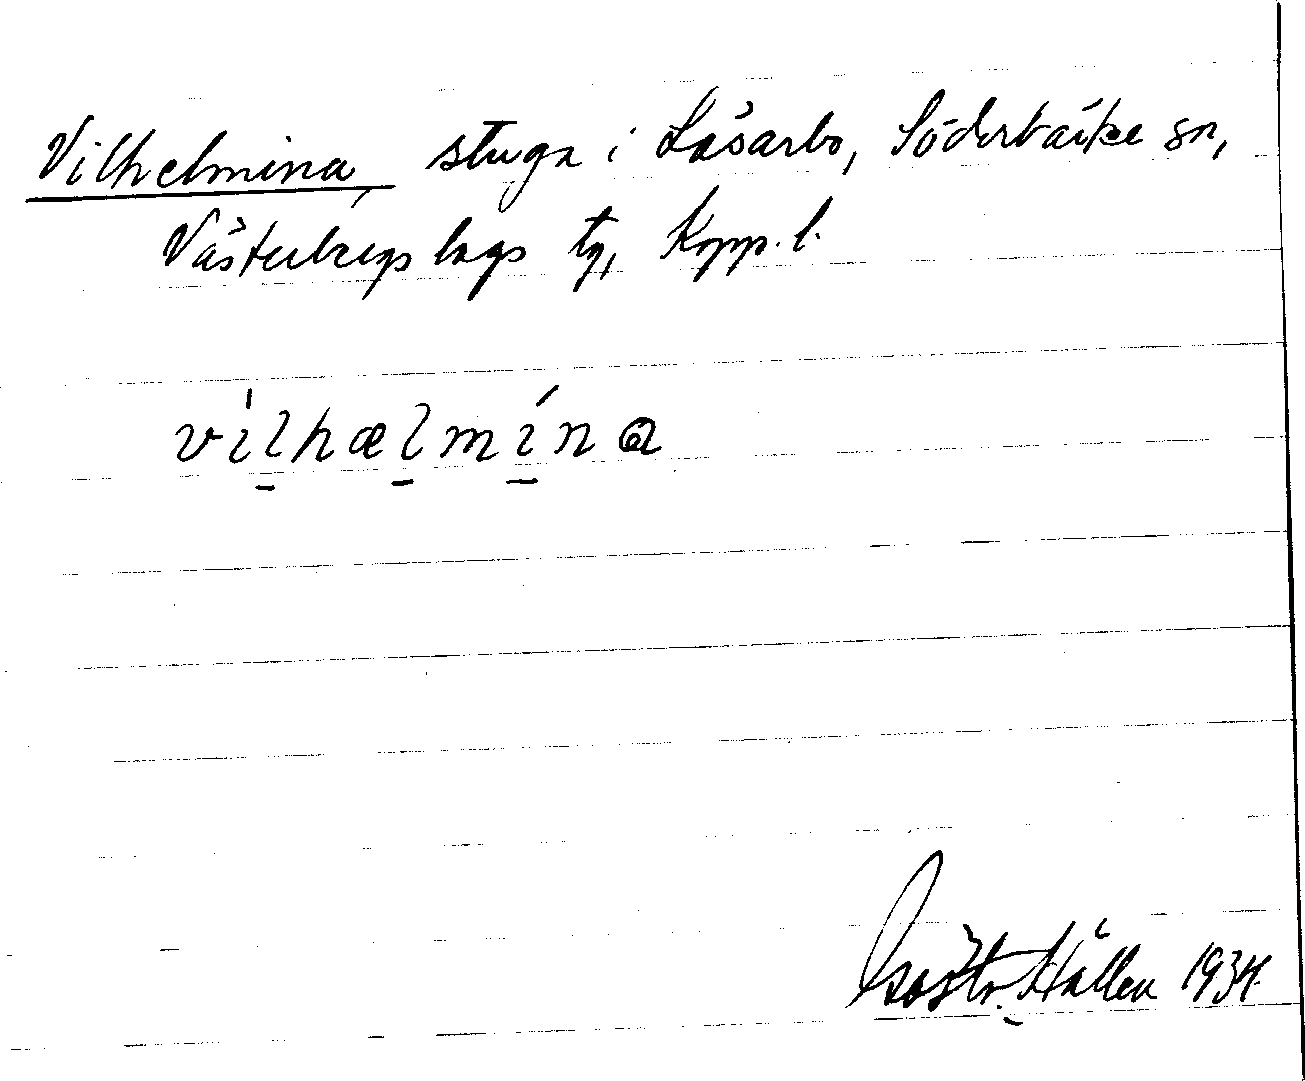 Vilhelmina, stuga i Låsarbo, Söderbärke sn,
Västerbergslags tg, Kopp. l.
vilhælmína
Hållen 1934